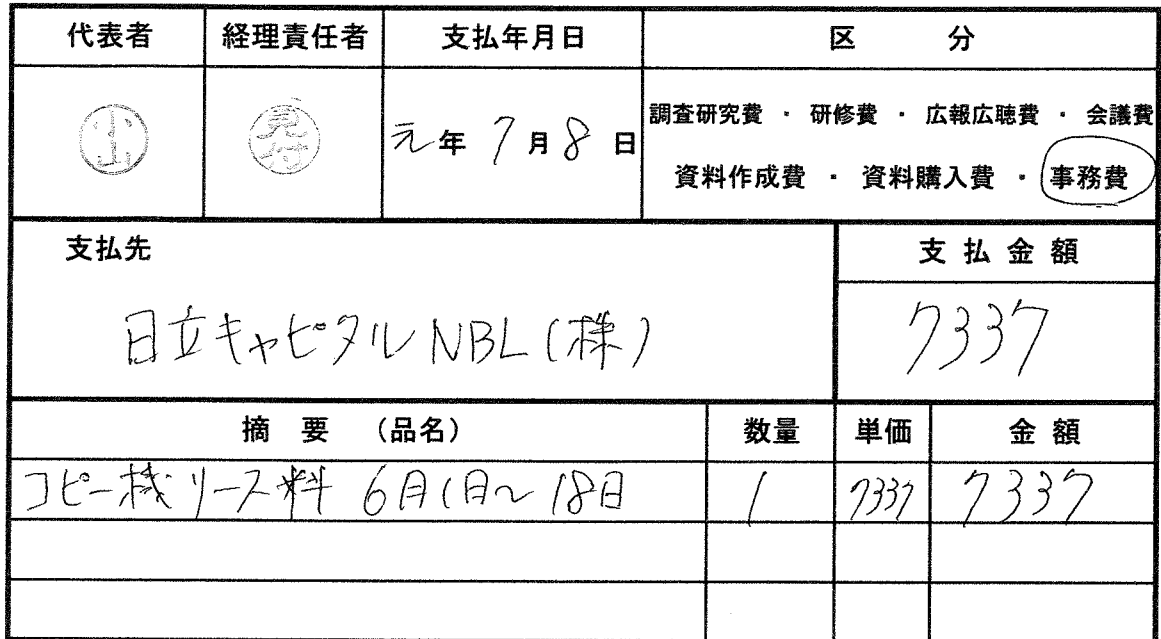 代表者 経理責任者 支払年月日 区 分
小山 見付 元年 7月8日
調査研究費 ・ 研修費 ・ 広報広聴費 ・ 会議費
資料作成費 ・ 資料購入費 ・ 事務費
支払先 支払金額
日立キャピタルNBL(株) 7337
摘 要 (品名) 数量 単価 金額
コピー機リース料 6月1日~18日 1 7337 7337